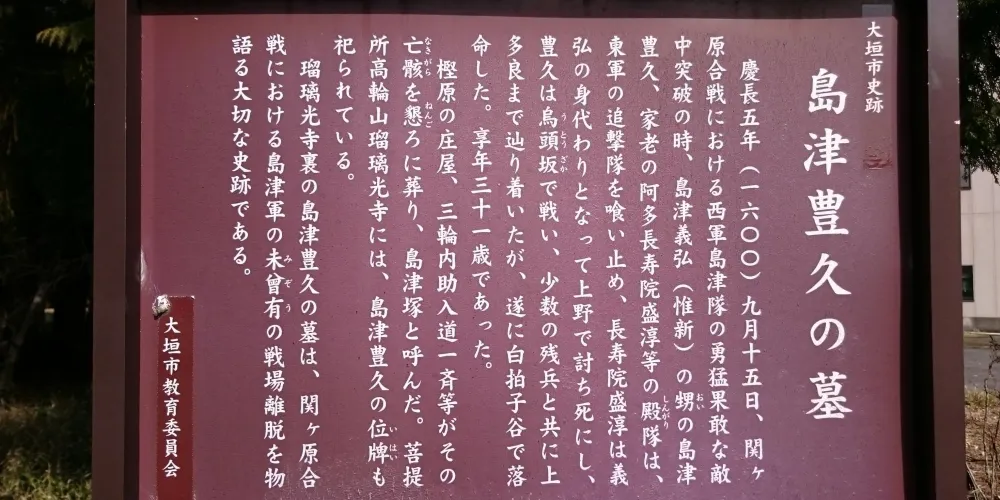 大垣市史跡
島津豊久の墓
慶長五年(一六〇〇)九月十五日、関ヶ
原合戦における西軍島津隊の勇猛果敢な敵
中突破の時、島津義弘(惟新)の甥の島津
豊久、家老の阿多長寿院盛淳等の殿隊は、
東軍の追撃隊を喰い止め、長寿院盛淳は義
弘の身代わりとなって上野で討ち死にし、
豊久は烏頭坂で戦い、少数の残兵と共に上
多良まで辿り着いたが、遂に白拍子谷で落
命した。享年三十一歳であった。
樫原の庄屋、三輪内助入道一斉等がその
亡骸を懇ろに葬り、島津塚と呼んだ。菩提
所高輪山瑠璃光寺には、島津豊久の位牌も
祀られている。
瑠璃光寺裏の島津豊久の墓は、関ヶ原合
戦における島津軍の未曾有の戦場離脱を物
語る大切な史跡である。
大垣市教育委員会